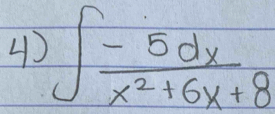 4) ∫ (- 5dx)/(x² + 6x + 8)